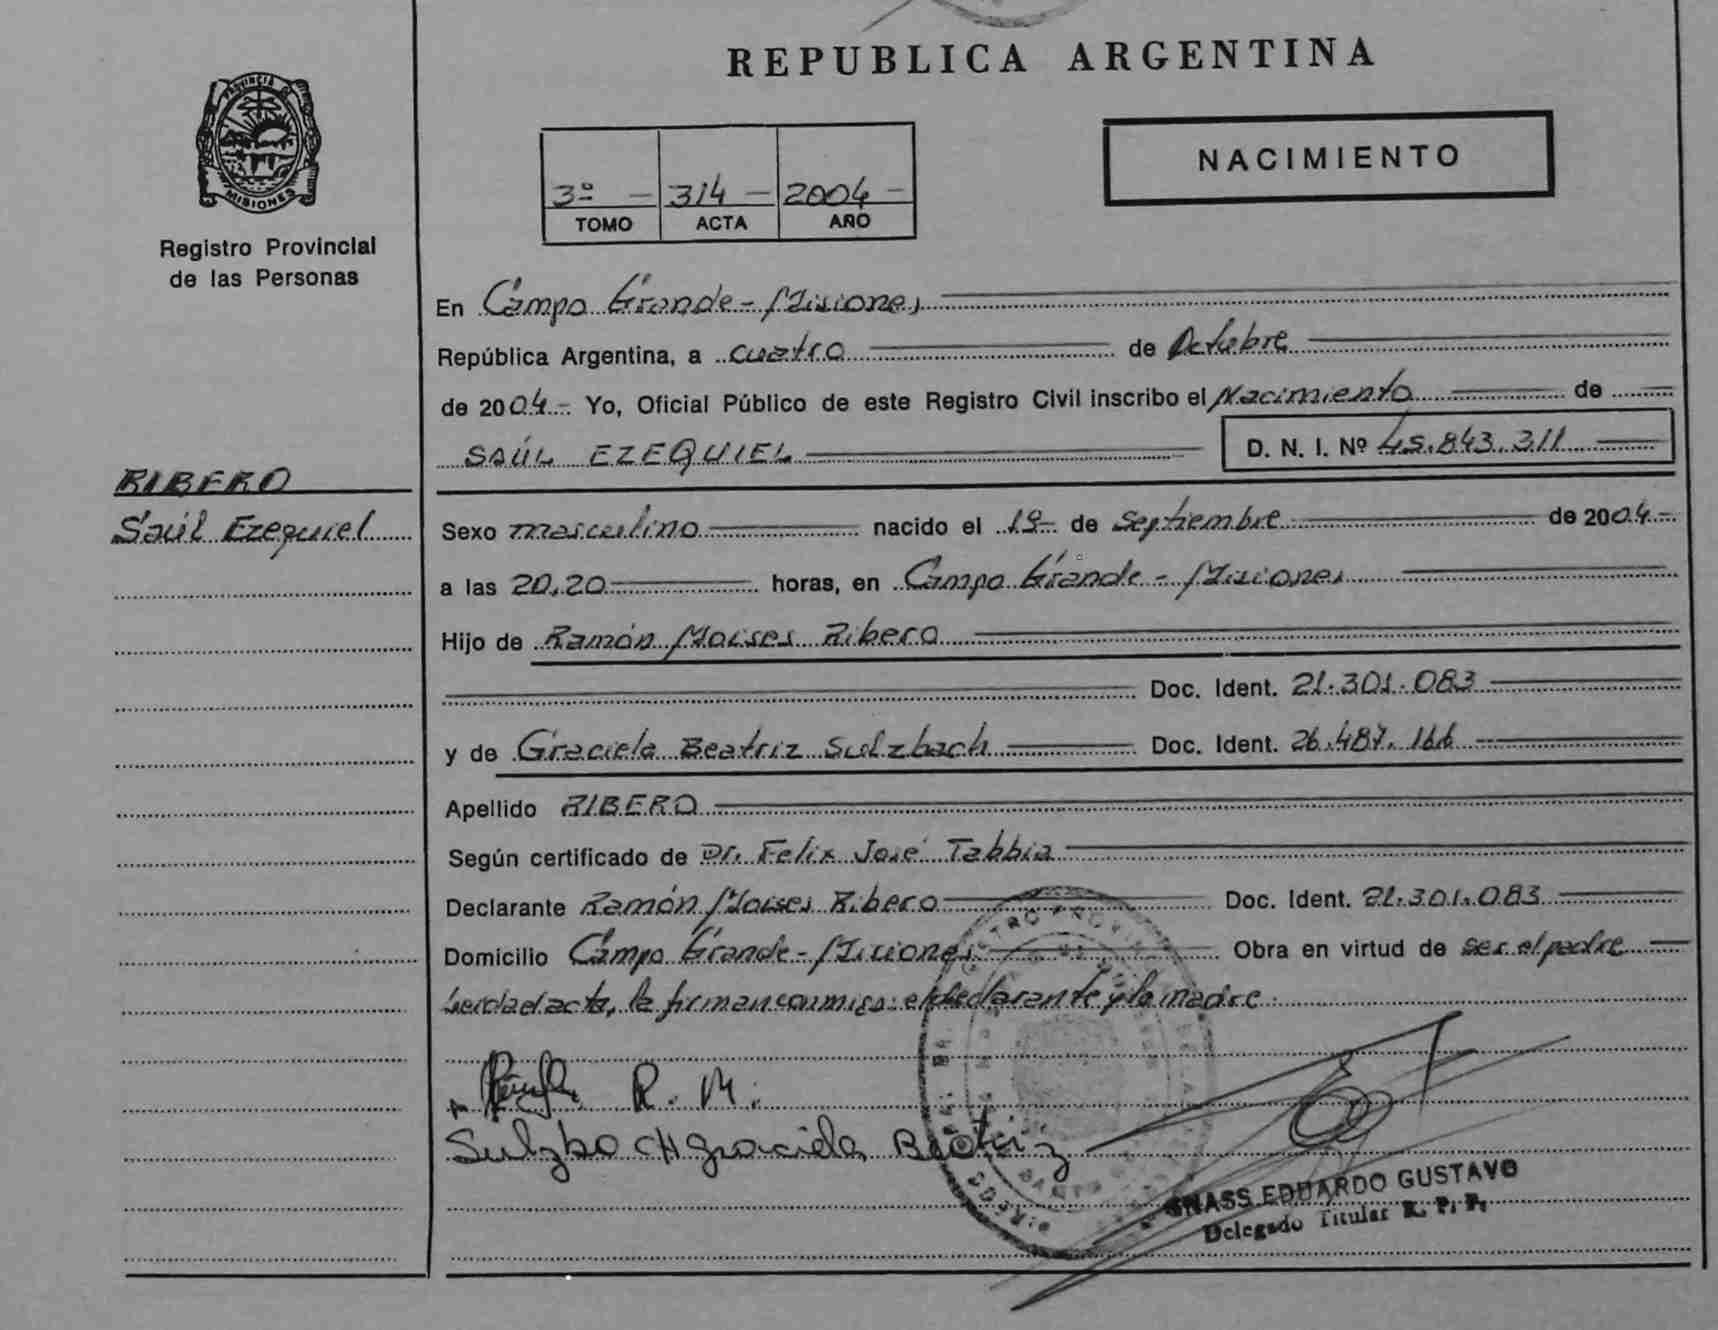 REPUBLICA ARGENTINA
PROVINCIA DE
MISIONES
Registro Provincial
de las Personas
3º - 314 - 2004 -
TOMO ACTA AÑO
NACIMIENTO
En Campo Grande - Misiones
República Argentina, a cuatro de Octubre
de 2004 - Yo, Oficial Público de este Registro Civil inscribo el Nacimiento de
SAÚL EZEQUIEL D. N. I. Nº 45.843.311
RIBERO
Saúl Ezequiel
Sexo masculino nacido el 19 - de Septiembre de 2004 -
a las 20.20 horas, en Campo Grande - Misiones
Hijo de Ramón Moises Ribero
Doc. Ident. 21.301.083
y de Graciela Beatriz Sulzbach Doc. Ident. 26.487.166
Apellido RIBERO
Según certificado de Dr. Felix José Tabbia
Declarante Ramón Moises Ribero Doc. Ident. 21.301.083
Domicilio Campo Grande - Misiones Obra en virtud de ser el padre
acta, la firman conmigo: el declarante y la madre.
R. M.
Sulzbach Graciela Beatriz
EDUARDO GUSTAVO
Delegado Titular R. P. P.